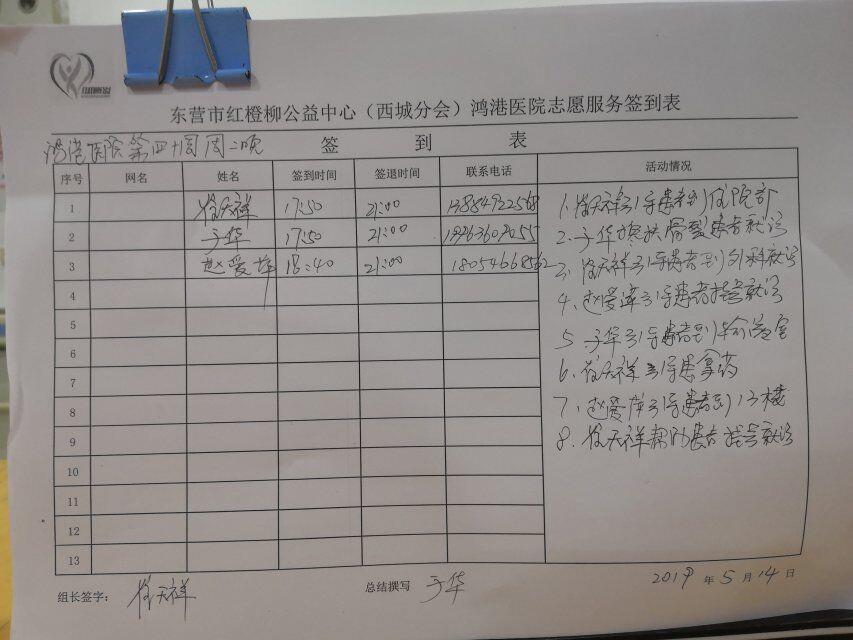 东营市红橙柳公益中心（西城分会）鸿港医院志愿服务签到表
鸿港医院第四十周周二晚 签到表
序号 网名 姓名 签到时间 签退时间 联系电话 活动情况
1 徐天祥 17:50 21:00
2 于华 17:50 21:00
3 赵爱萍 18:40 21:00 18054668562
4
5
6
7
8
9
10
11
12
13
1、徐天祥引导患者到住院部
2、于华搀扶骨裂患者就诊
3、徐天祥引导患者到外科就诊
4、赵爱萍引导患者挂号就诊
5、于华引导患者到输液室
6、徐天祥引导患拿药
7、赵爱萍引导患者到13楼
8、徐天祥帮助患者挂号就诊
组长签字： 徐天祥 总结撰写 于华 2019年5月14日